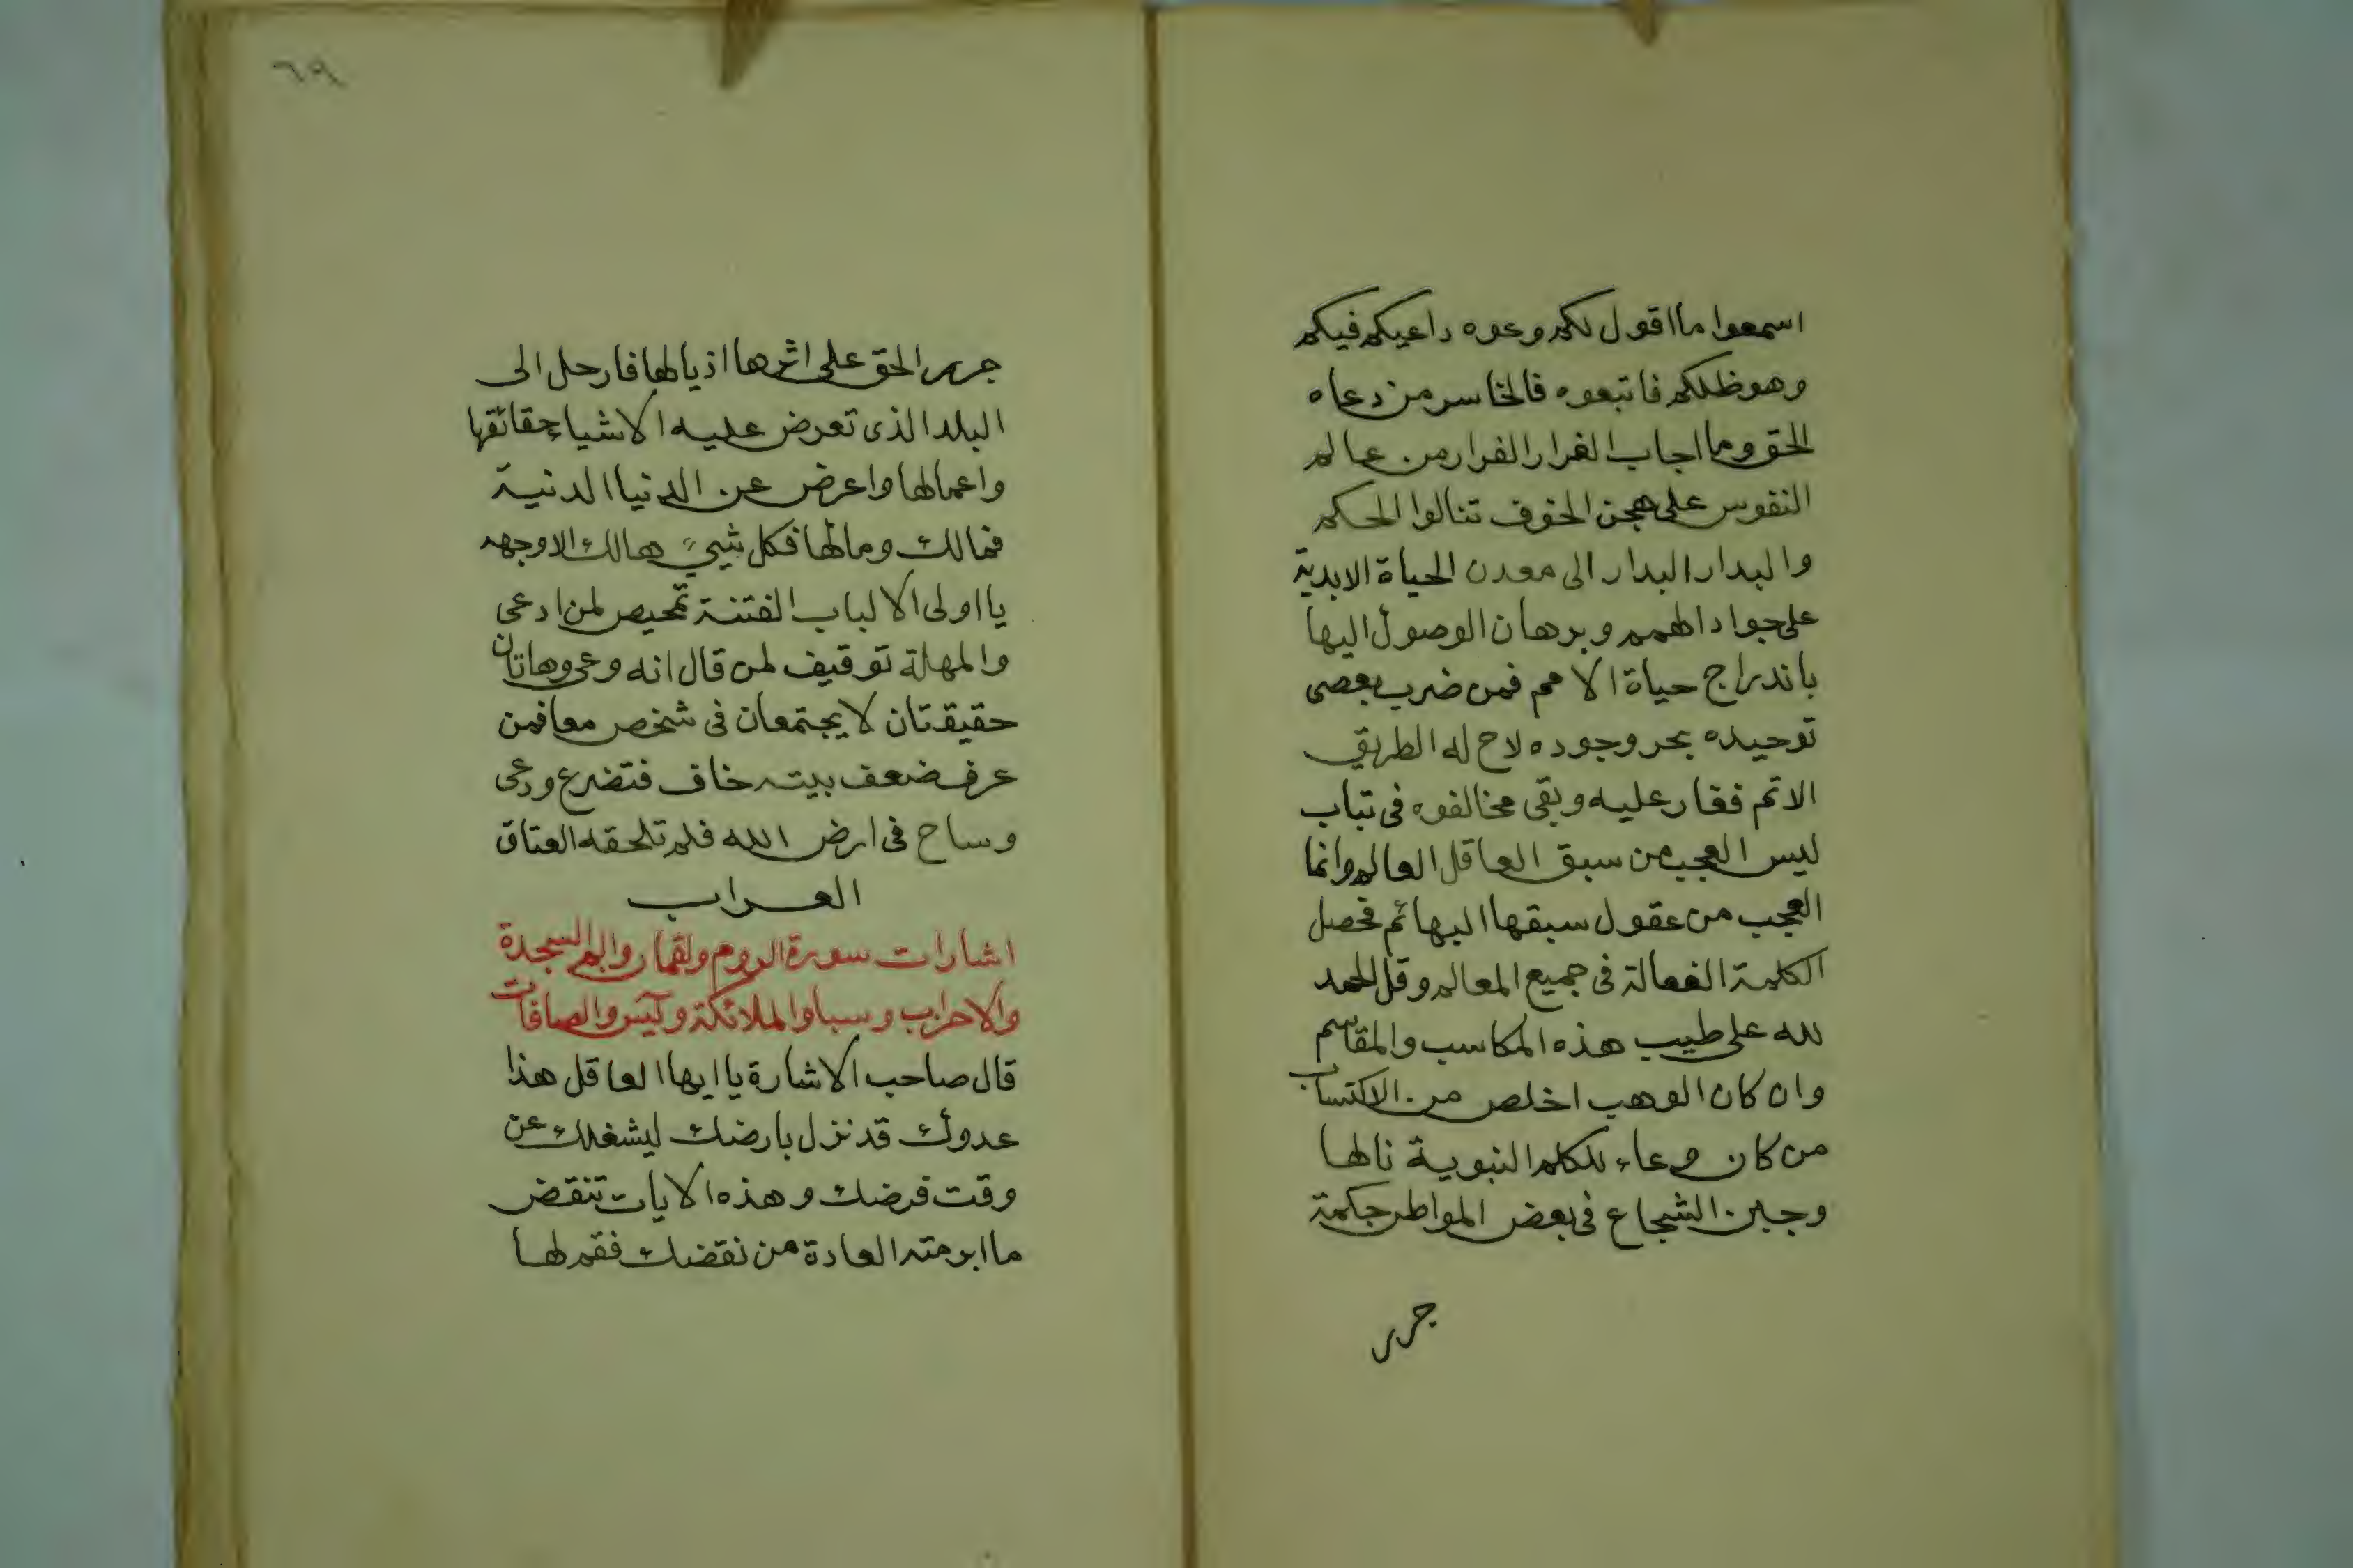 اسمعوا ما اقول لكم وعوه داعيكم فيكم
وهو ظلكم فاتبعوه فالخاسر من دعاه
الحق وما اجاب الفرار الفرار من عالم
النفوس على هجن الخوف تنالوا الحكم
والبدار البدار الى معدن الحياة الابدية
على جواد الهمم وبرهان الوصول اليها
باندراج حياة الامم فمن ضرب بعصى
توحيده بحر وجوده لاح له الطريق
الاتم فغار عليه وبقى مخالفوه فى تباب
ليس العجب من سبق العاقل العالم وانما
العجب من عقول سبقها البهائم فحصل
الكلمة الفعالة فى جميع المعالم وقل الحمد
لله على طيب هذه المكاسب والمقاسم
وان كان الوهب اخلص من الاكتساب
من كان وعاء للكلم النبوية نالها
وجبن الشجاع فى بعض المواطن حكمة
جرر
٦٩
جرر الحق على اثرها اذيالها فارحل الى
البلد الذى تعرض عليه الاشياء حقائقها
واعمالها واعرض عن الدنيا الدنية
فمالك ومالها فكل شيء هالك الا وجهه
يا اولى الالباب الفتنة تمحيص لمن ادعى
والمهلة توقيف لمن قال انه وعى وهاتان
حقيقتان لا يجتمعان فى شخص معا فمن
عرف ضعف بيته خاف فتضرع ودعى
وساح فى ارض الله فلم تلحقه العتاق
العراب
اشارات سورة الروم ولقمان والم السجدة
والاحزاب وسبا والملائكة ويس والصافات
قال صاحب الاشارة يا ايها العاقل هذا
عدوك قد نزل بارضك ليشغلك عن
وقت فرضك وهذه الايات تنقض
ما ابرمته العادة من نقضك فقم لها